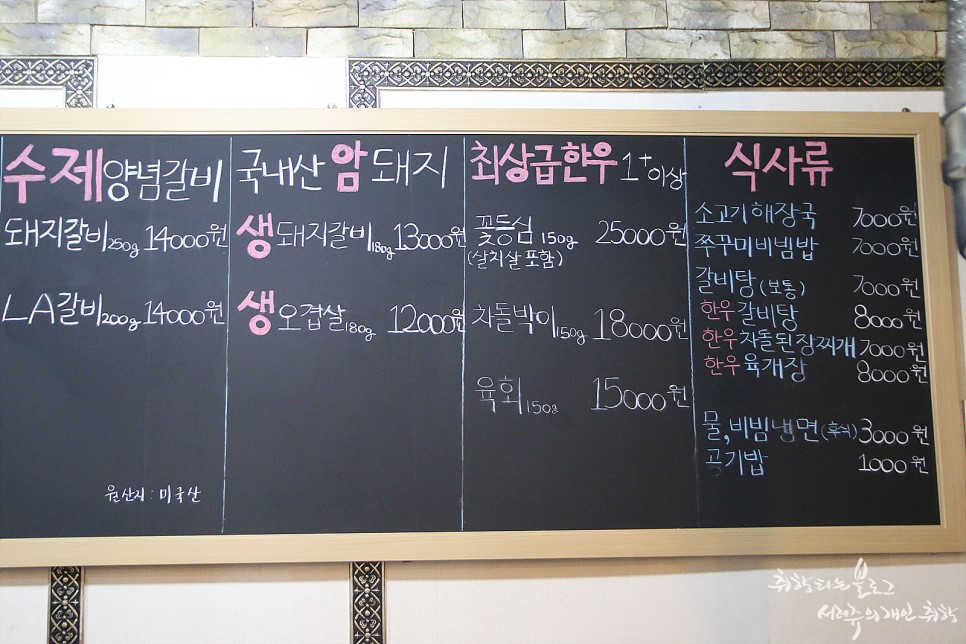 수제양념갈비
돼지갈비 250g 14000원
LA갈비 200g 14000원
원산지 : 미국산
국내산 암돼지
생돼지갈비 180g 13000원
생오겹살 180g 12000원
최상급한우 1+이상
꽃등심 150g 25000원
(살치살 포함)
차돌박이 150g 18000원
육회 150g 15000원
식사류
소고기해장국 7000원
쭈꾸미비빔밥 7000원
갈비탕(보통) 7000원
한우갈비탕 8000원
한우차돌된장찌개 7000원
한우육개장 8000원
물,비빔냉면(후식) 3000원
공기밥 1000원
취향타는 블로그
의 개인 취향